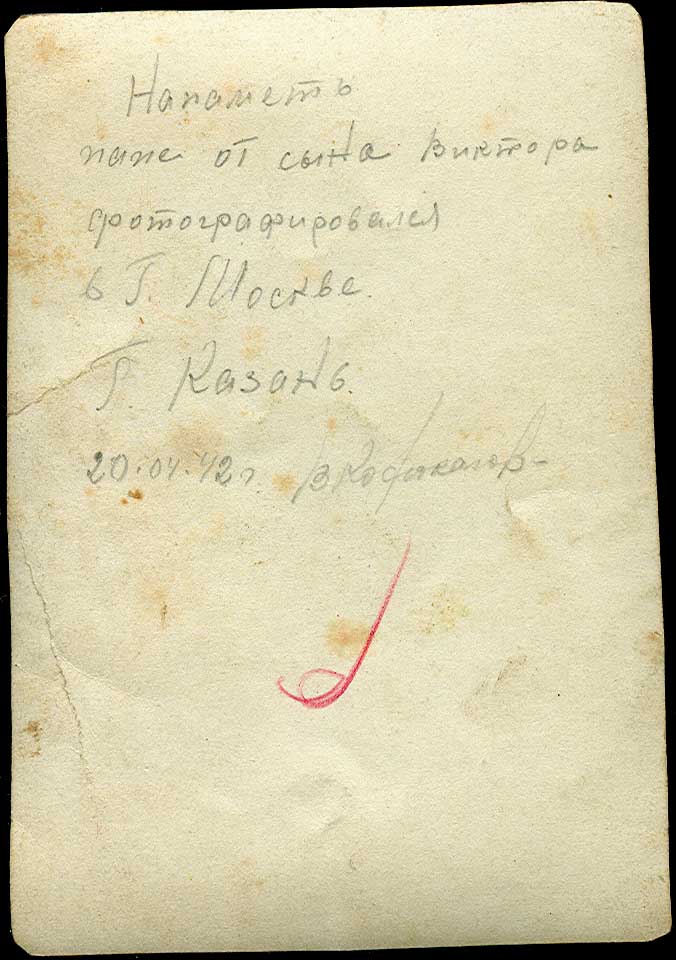 Напаметь
папе от сына Виктора
фотографировался
в Г. Москве.
Г. Казань.
20.04.42 г.